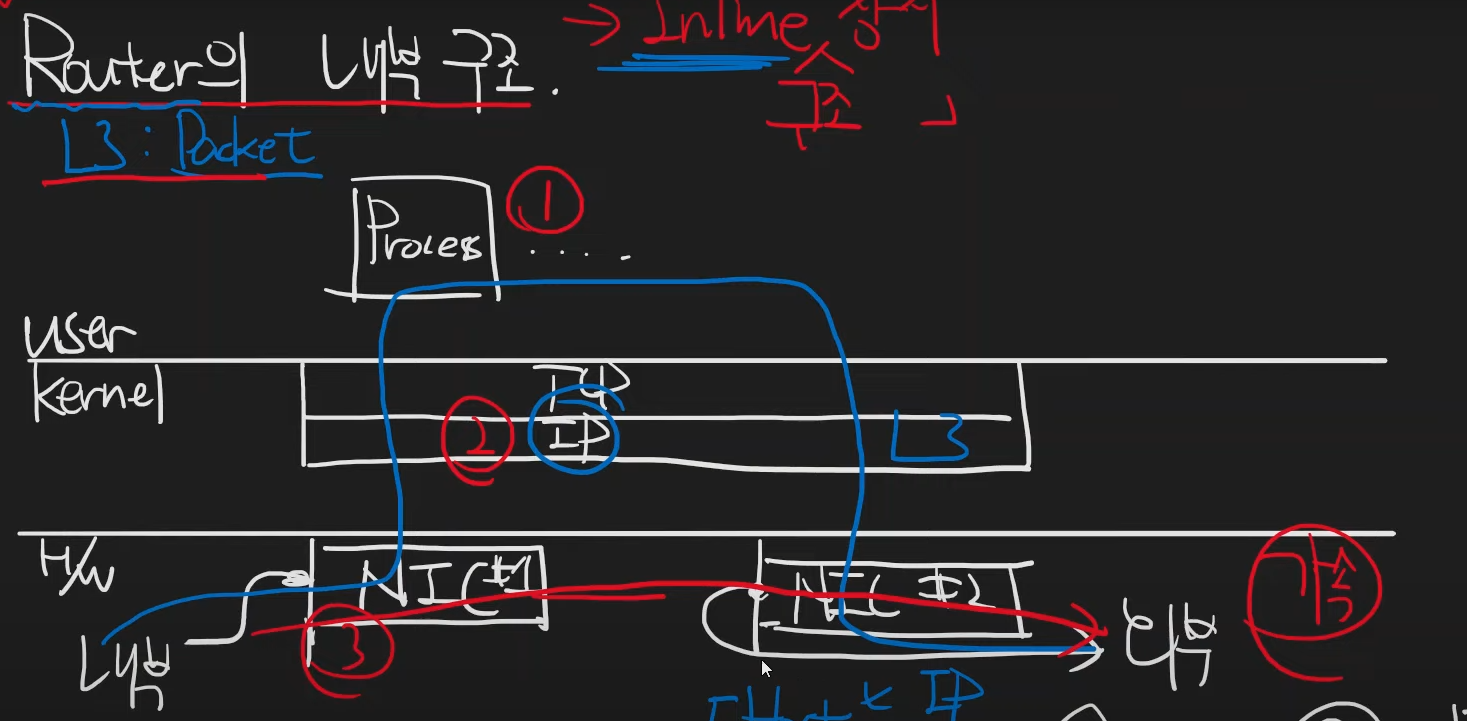 Router의 내부 구조.
→ Inline 장치
구조
L3 : Packet
Process
1
.....
user
kernel
TCP
2
IP
L3
H/W
NIC#1
NIC #2
가속
3
내부
외부
IP